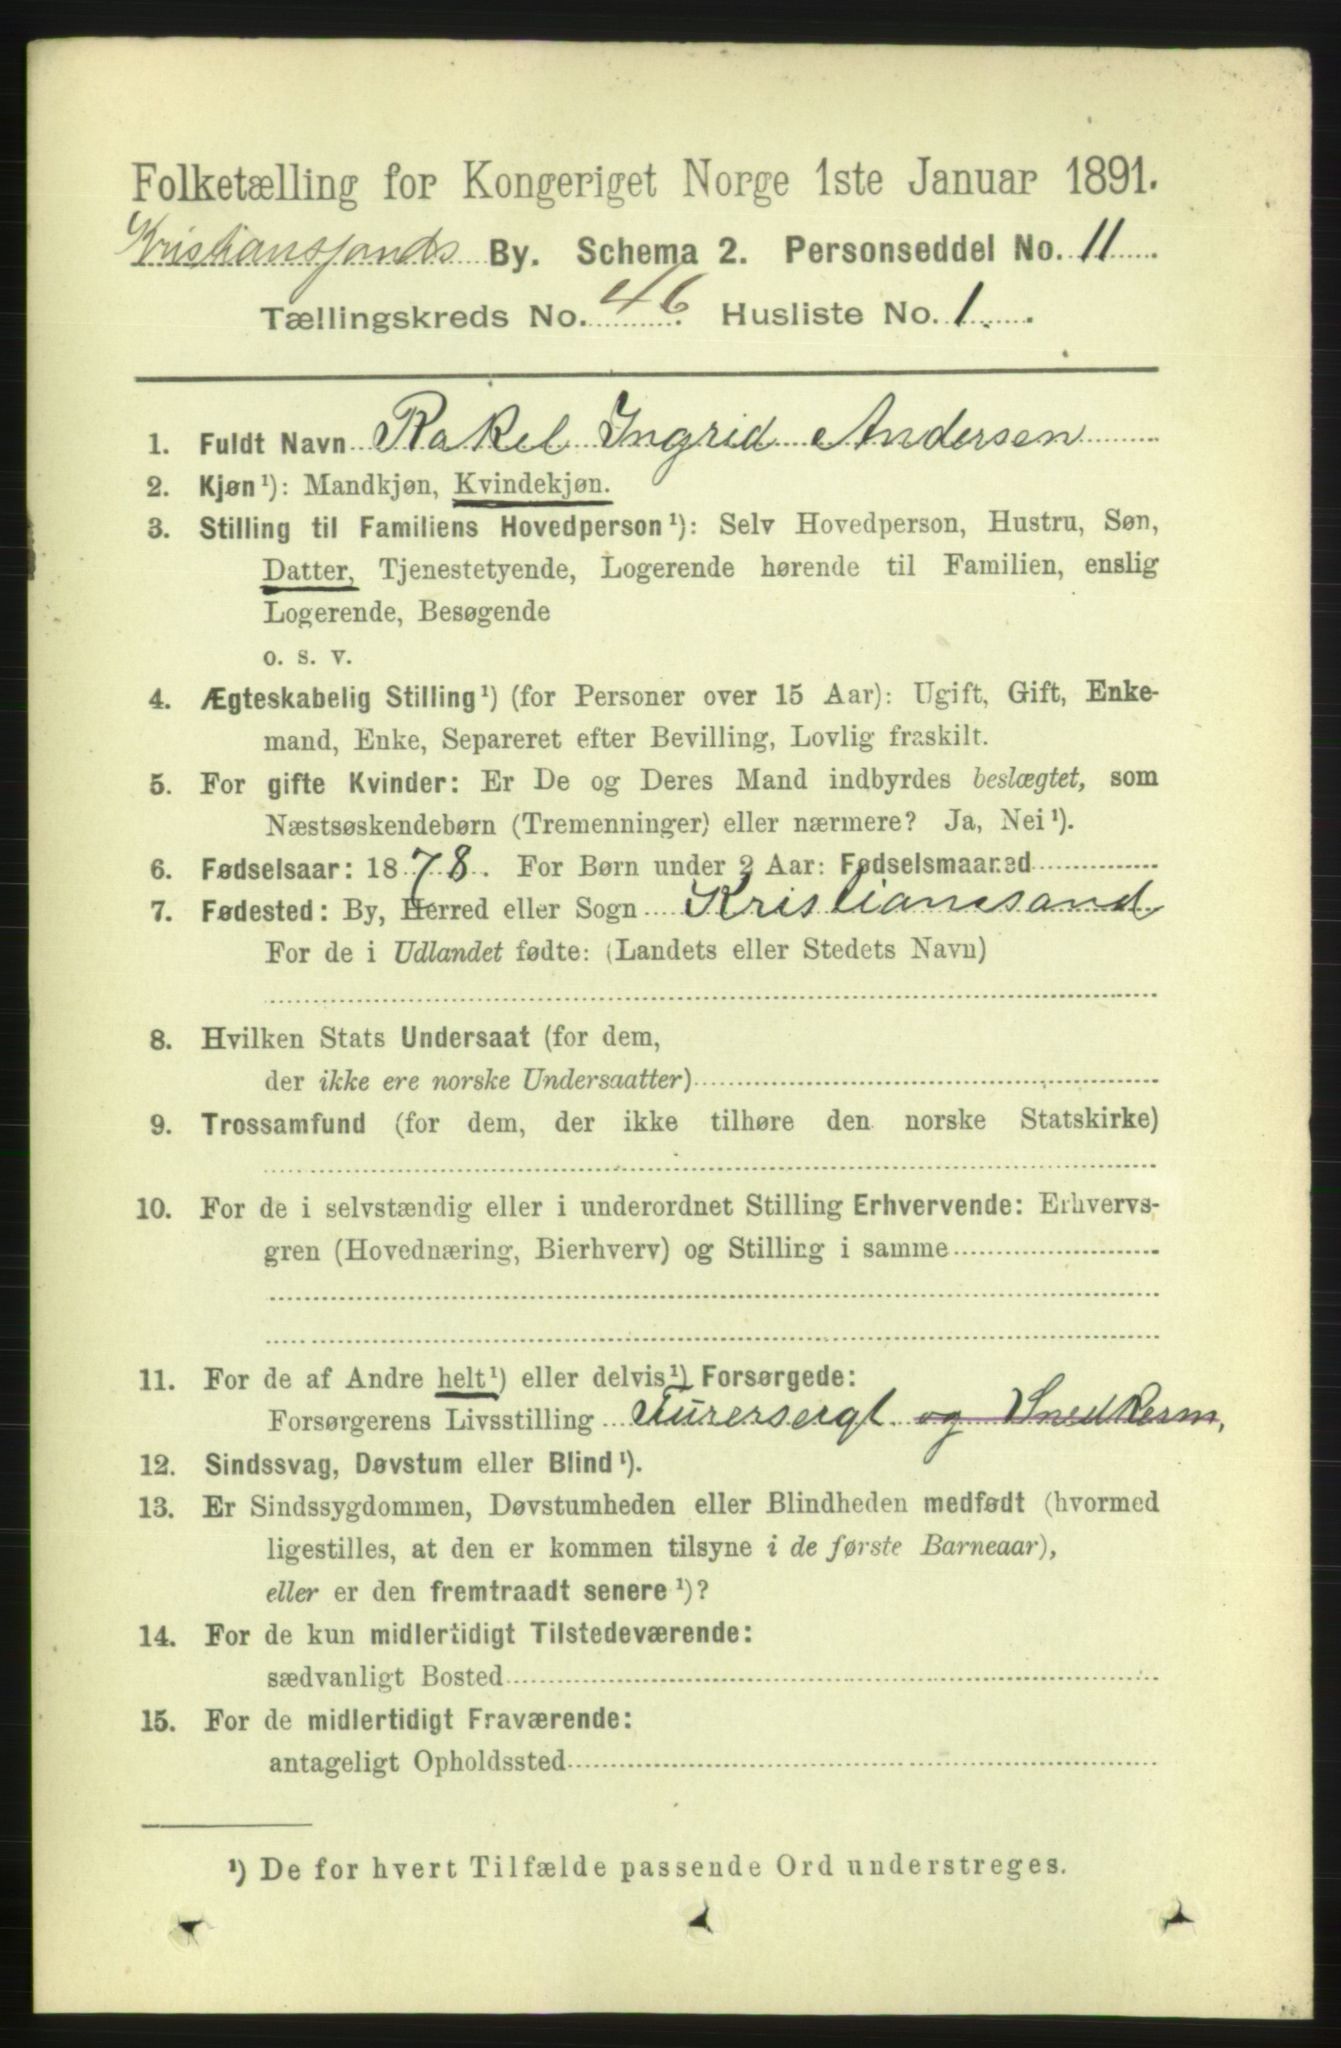 Folketælling for Kongeriget Norge 1ste Januar 1891.
Kristianssands By. Schema 2. Personseddel No. 11
Tællingskreds No. 46 Husliste No. 1.
1. Fuldt Navn Rakel Ingrid Andersen
2. Kjøn¹): Mandkjøn, Kvindekjøn.
3. Stilling til Familiens Hovedperson¹): Selv Hovedperson, Hustru, Søn,
Datter, Tjenestetyende, Logerende hørende til Familien, enslig
Logerende, Besøgende
o. s. v.
4. Ægteskabelig Stilling¹) (for Personer over 15 Aar): Ugift, Gift, Enke-
mand, Enke, Separeret efter Bevilling, Lovlig fraskilt.
5. For gifte Kvinder: Er De og Deres Mand indbyrdes beslægtet, som
Næstsøskendebørn (Tremenninger) eller nærmere? Ja, Nei¹).
6. Fødselsaar: 1878. For Børn under 2 Aar: Fødselsmaaned
7. Fødested: By, Herred eller Sogn Kristianssand
For de i Udlandet fødte: (Landets eller Stedets Navn)
8. Hvilken Stats Undersaat (for dem,
der ikke ere norske Undersaatter)
9. Trossamfund (for dem, der ikke tilhøre den norske Statskirke)
10. For de i selvstændig eller i underordnet Stilling Erhvervende: Erhvervs-
gren (Hovednæring, Bierhverv) og Stilling i samme
11. For de af Andre helt¹) eller delvis¹) Forsørgede:
Forsørgerens Livsstilling Furersergt og Snedkerm,
12. Sindssvag, Døvstum eller Blind¹).
13. Er Sindssygdommen, Døvstumheden eller Blindheden medfødt (hvormed
ligestilles, at den er kommen tilsyne i de første Barneaar),
eller er den fremtraadt senere¹)?
14. For de kun midlertidigt Tilstedeværende:
sædvanligt Bosted
15. For de midlertidigt Fraværende:
antageligt Opholdssted
¹) De for hvert Tilfælde passende Ord understreges.